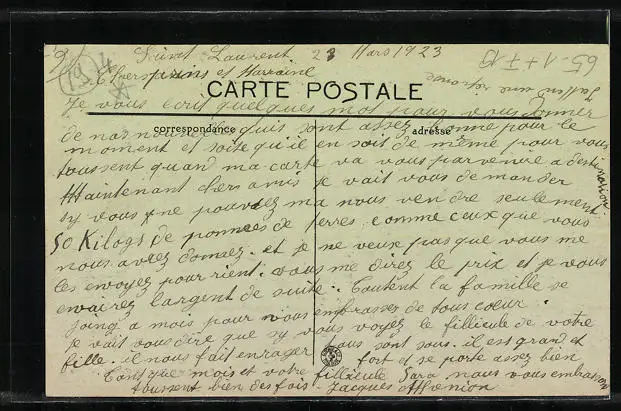 Saint Laurent 23 Mars 1923
65-1+719
Chers amis et Marraine
19
4
J'attend une reponse
CARTE POSTALE
Je vous ecrit quelques mot pour vous donner
correspondance
adresse
de nos nouvelles quis sont assez bonne pour le
moment et soite qu'il en soit de même pour vous
toussent quand ma carte va vous parvenure a destination.
Maintenant chers amis je vait vous demander
sy vous ne pouvez ma nous vendre seulement
50 Kilogs de pommes de terres comme ceux que vous
nous avez donnez. et je ne veux pas que vous me
les envoyez pour rient. vous me direz le prix et je vous
envairez largent de suite. Toutent la famille se
joing a mois pour vous embrasser de tous coeur.
je vait vous dire que sy vous voyez le fillieule de votre
fille. il nous fait enrager tous sont sous. il est grand et
fort et se porte assez bien
Tant que mois et votre fillieule Sara nous vous embrasson
toussent bien des fois - Jacques